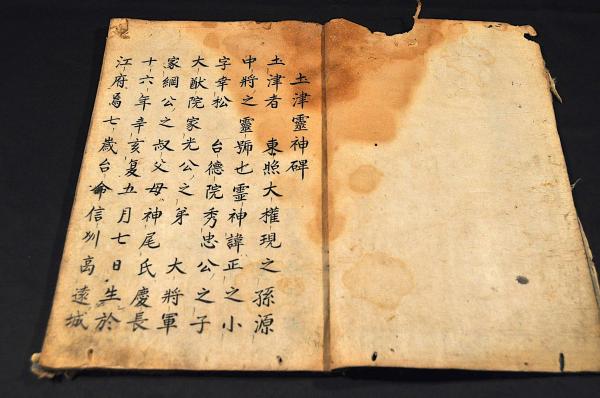 土津靈神碑
土津者　東照大權現之孫源
中將之靈號也靈神諱正之小
字幸松　台德院秀忠公之子
大猷院家光公之弟　大將軍
家綱公之叔父母神尾氏慶長
十六年辛亥夏五月七日生於
江府爲七歲台命信州高遠城